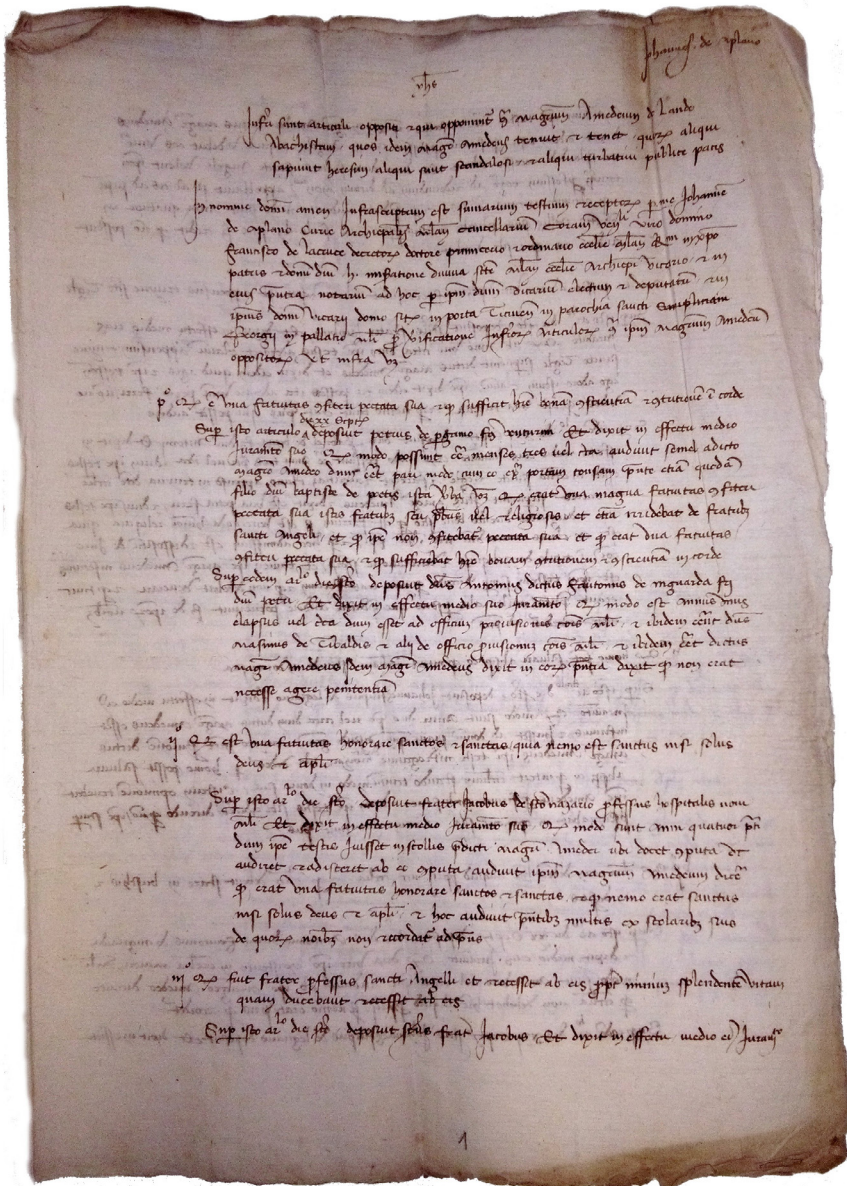 Johannes de aplano
yhs
Infra sunt articuli oppositi et qui opponuntur contra Magistrum Amedeum de Lando
Abachistam quos idem Magister Amedeus tenuit et tenet quorum aliqui
sapiunt heresim aliqui sunt scandalosi et aliqui turbativi publice pacis
In nomine domini amen Infrascriptum est sumarium testium receptorum per me Johannem
de aplano Curie Archiepalis mlani Cancellarium Coram venli viro domino
Francisco de Lacruce decretorum doctore primicerio et ordinario ecclie mlani
patris et domini divina sancte mlani ecclie Archiepi vicario et in
eius notarium ad hoc per ipm dnm vicarium electum et deputatum et in
ipsius domini vicarii domo sita in porta Ticinensi in parochia sancti
Georgii in pallatio mli pro verificatione infrascriptorum articulorum contra ipm Magistrum Amedeum
oppositorum ut infra vz
p° Quod est una fatuitas confiteri peccata sua et quod sufficit habere bonam conscientiam et contritionem in corde
die xx Septembris
Super isto articulo deposuit petrus de pergamo Et dixit in effectu medio
Juramento suo Quod modo possunt esse menses tres vel circa audivit semel a dicto
Magistro Amedeo portam tonsam presente etiam quodam
filio dni baptiste de ista verba vz Quod erat una magna fatuitas confiteri
peccata sua istis fratribus seu presbiteris vel religiosis et etiam irridebat de fratribus
sancti Angeli et quod ipse non confitebatur peccata sua et quod erat una fatuitas
confiteri peccata sua et quod sufficiebat habere bonam contritionem et conscientiam in corde
Super eodem arlo die sto deposuit dns Antonius dictus de inguarda
dni petri Et dixit in effectu medio suo Juramento Quod modo est annus unus
elapsus vel circa dum esset ad officium provisionis cois mli et ibidem essent dns
Masinus de Tibaldis et alii de officio provisionum cois mli et ibidem esset dictus
magister Amedeus Idem magister Amedeus dixit in eorum presentia dixit quod non erat
necesse agere penitentiam
ii° Quod est una fatuitas honorare sanctos et sanctas quia nemo est sanctus nisi solus
deus et apli
Super isto arlo die sto deposuit frater Jacobus de sto nazario professus hospitalis novi
mli Et dixit in effectu medio Juramento suo Quod modo sunt anni quatuor
dum ipse testis Iuisset in scollis predicti Magistri Amedei ubi docet computa ut
audiret et adisceret ab eo computa audivit ipm Magistrum Amedeum dicere
quod erat una fatuitas honorare sanctos et sanctas et quod nemo erat sanctus
nisi solus deus et apli et hoc audivit presentibus multis ex scolaribus suis
de quorum noibus non recordatur ad presens
iii° Quod fuit frater professus sancti Angelli et recessit ab eis propter nimium splendentem vitam
quam ducebant recessit ab eis
Super isto arlo die sto deposuit frater Jacobus Et dixit in effectu medio eius Juramento
1